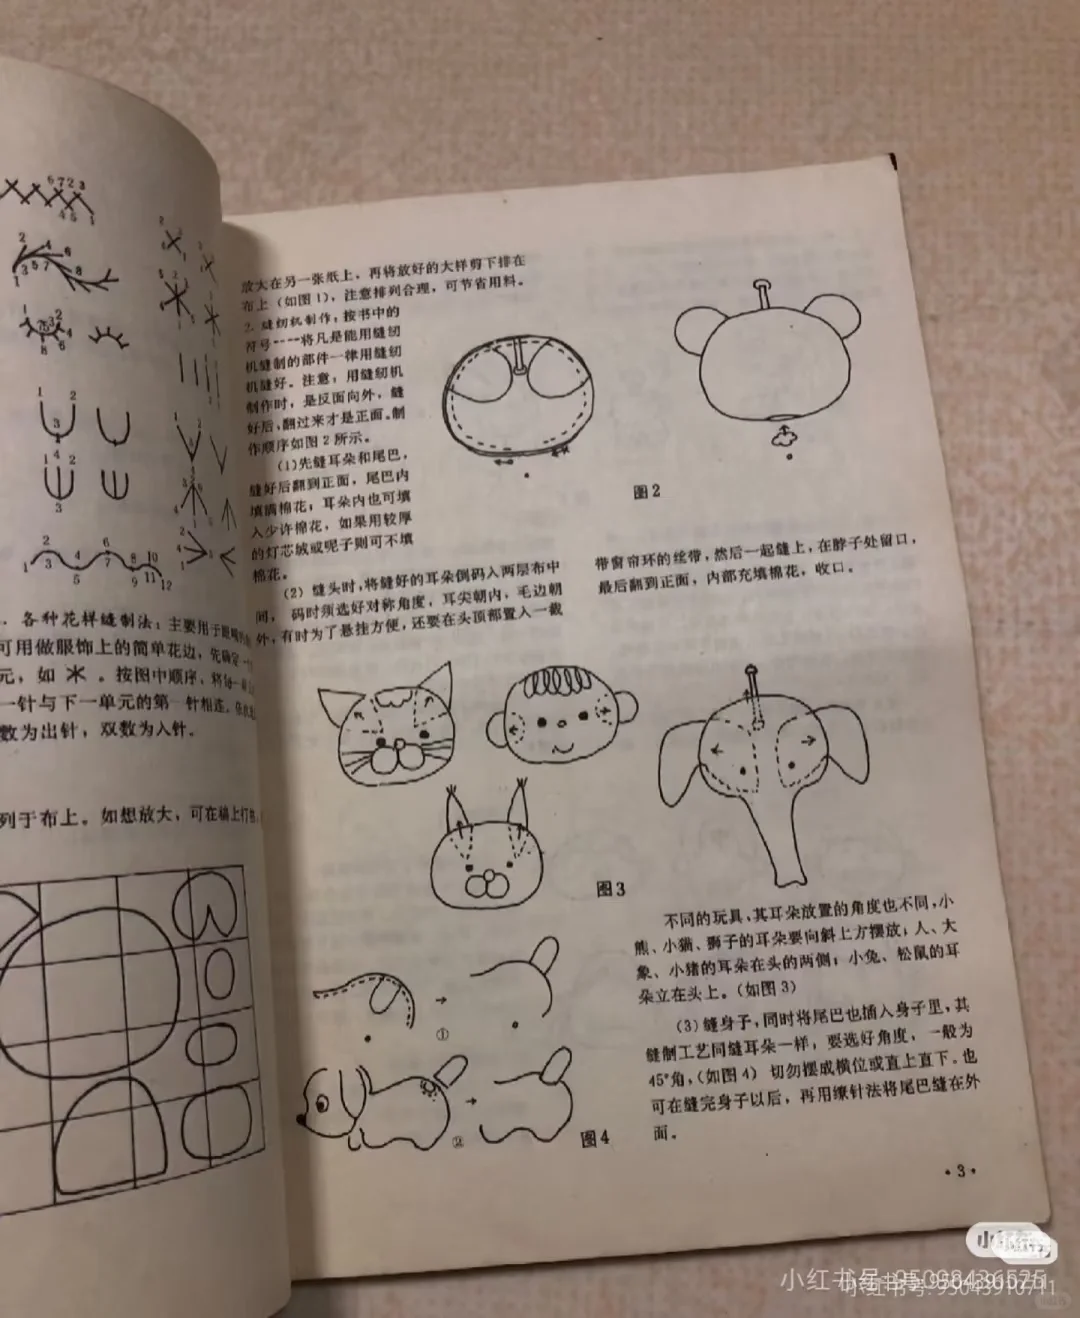 1. 各种花样缝制法：主要用于眼
可用做服饰上的简单花边，先确定一
元，如 米 。按图中顺序，将每一
一针与下一单元的第一针相连。
数为出针，双数为入针。
列于布上。如想放大，可在稿上打
放大在另一张纸上，再将放好的大样剪下排在
布上（如图1），注意排列合理，可节省用料。
2. 缝纫机制作，按书中的
符号----将凡是能用缝纫
机缝制的部件一律用缝纫
机缝好。注意：用缝纫机
制作时，是反面向外，缝
好后，翻过来才是正面。制
作顺序如图2所示。
(1)先缝耳朵和尾巴，
缝好后翻到正面，尾巴内
填满棉花；耳朵内也可填
入少许棉花，如果用较厚
的灯芯绒或呢子则可不填
棉花。
(2) 缝头时，将缝好的耳朵倒码入两层布中
间， 码时须选好对称角度，耳尖朝内，毛边朝
外，有时为了悬挂方便，还要在头顶部置入一截
图2
带窗帘环的丝带，然后一起缝上，在脖子处留口，
最后翻到正面，内部充填棉花，收口。
图3
不同的玩具，其耳朵放置的角度也不同，小
熊、小猫、狮子的耳朵要向斜上方摆放；人、大
象、小猪的耳朵在头的两侧；小兔、松鼠的耳
朵立在头上。（如图3）
(3) 缝身子，同时将尾巴也插入身子里，其
缝制工艺同缝耳朵一样，要选好角度，一般为
45°角，（如图4）切勿摆成横位或直上直下。也
可在缝完身子以后，再用缭针法将尾巴缝在外
面。
①
②
图4
·3·
小红书号: 95043910711